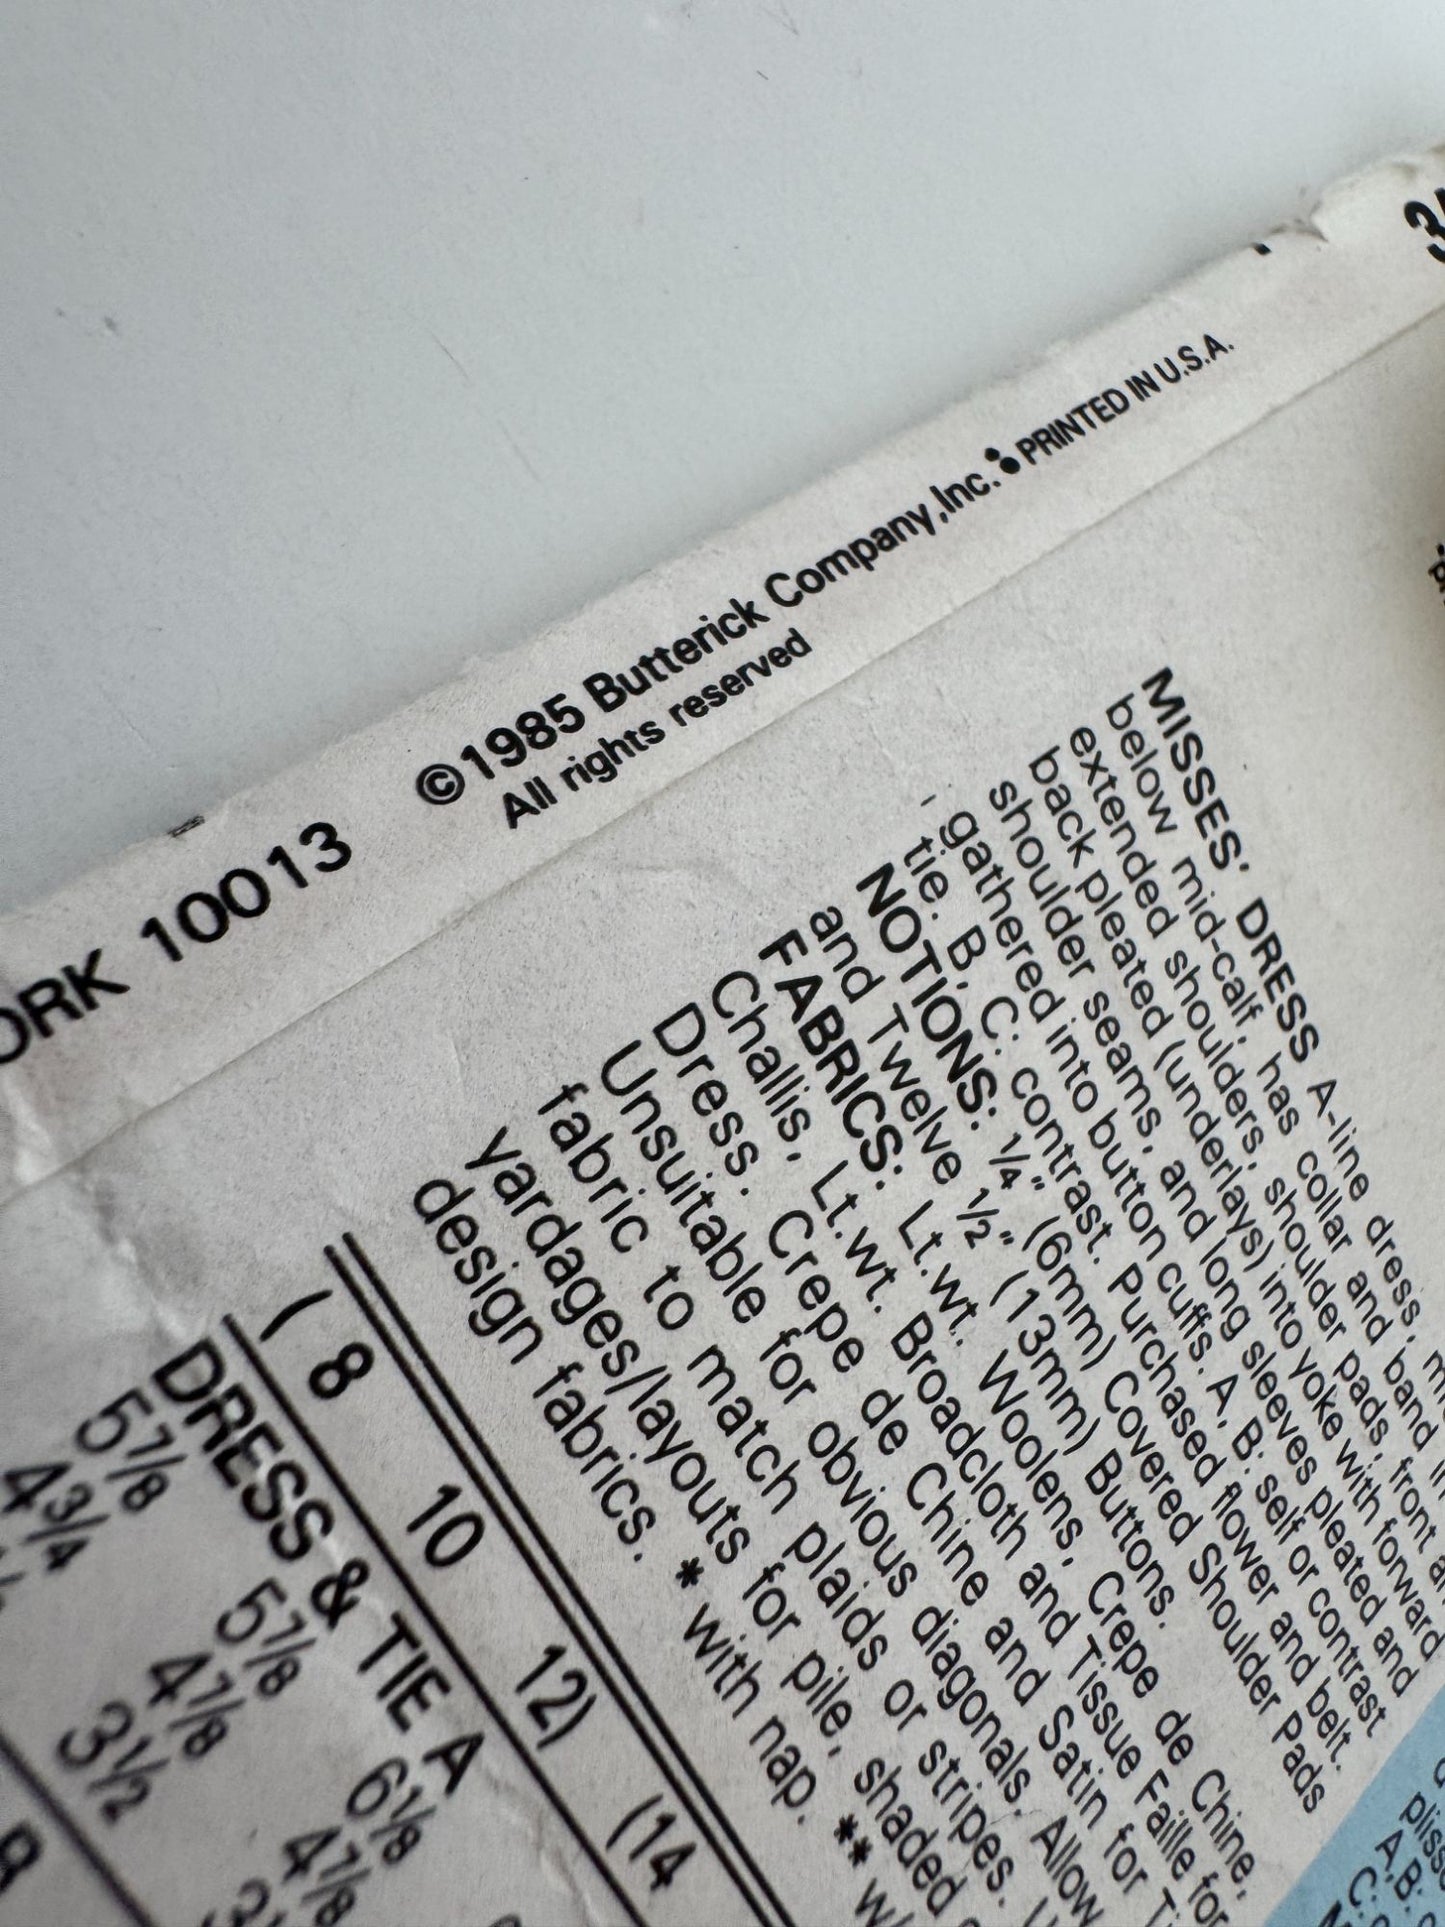 10013
©1985 Butterick Company, Inc. • PRINTED IN U.S.A.
All rights reserved
MISSES' DRESS A-line dress,
below mid-calf, has collar and band
extended shoulders, shoulder pads, front
back pleated (underlays) into yoke with forward
shoulder seams, and long sleeves pleated and
gathered into button cuffs. A, B: self or contrast
tie. B, C: contrast. Purchased flower and belt.
NOTIONS: 1/4" (6mm) Covered Shoulder Pads
and Twelve 1/2" (13mm) Buttons.
FABRICS: Lt.wt. Woolens, Crepe de Chine,
Challis, Lt.wt. Broadcloth and Tissue Faille for
Dress. Crepe de Chine and Satin for
Unsuitable for obvious diagonals. Allow
fabric to match plaids or stripes.
yardages/layouts for pile, shaded
design fabrics. * with nap. **
( 8 10 12) (14
DRESS & TIE A
5 7/8 5 7/8 6 1/8
4 3/4 4 7/8 4 7/8
3 1/2
A,B: